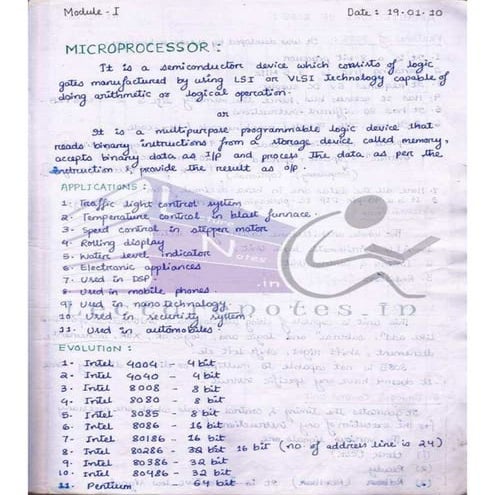 Module - I
Date : 19.01.10
MICROPROCESSOR :
It is a semiconductor device which consists of logic
gates manufactured by using LSI or VLSI technology capable of
doing arithmetic or logical operation.
or
It is a multipurpose programmable logic device that
reads binary instructions from a storage device called memory,
accepts binary data as I/p and process the data as per the
instruction & provide the result as o/p.
APPLICATIONS :
1. Traffic light control system
2. Temperature control in blast furnace.
3. Speed control in stepper motor
4. Rolling display
5. Water level indicator
6. Electronic appliances
7. Used in DSP
8. Used in mobile phones.
9. Used in nano technology
10. Used in security system
11. Used in automobiles.
Notes
.in
notes.in
EVOLUTION :
1. Intel 4004 - 4 bit
2. Intel 4040 - 4 bit
3. Intel 8008 - 8 bit
4. Intel 8080 - 8 bit
5. Intel 8085 - 8 bit
6. Intel 8086 - 16 bit
7. Intel 80186 - 16 bit
8. Intel 80286 - 32 bit 16 bit (no. of address line is 24)
9. Intel 80386 - 32 bit
10. Intel 80486 - 32 bit
11. Pentium - 64 bit